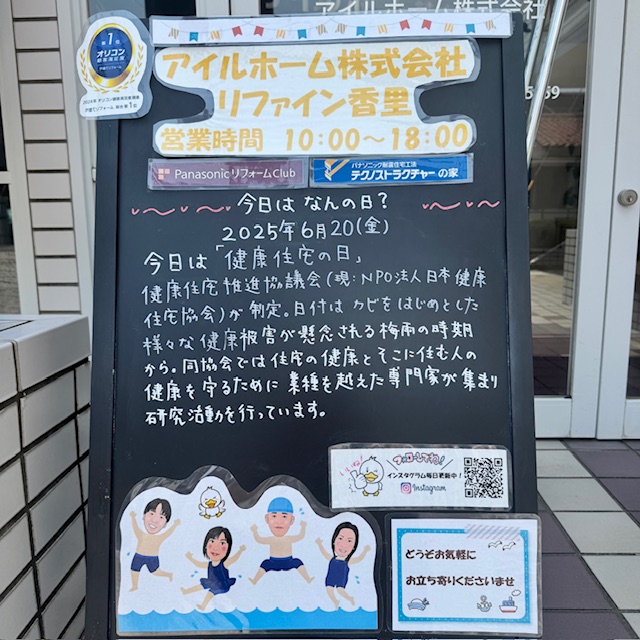 アイルホーム株式会社
第1位
オリコン
顧客満足度
アイルホーム株式会社
リファイン香里
営業時間 10:00～18:00
Panasonic リフォーム Club
パナソニック耐震住宅工法
テクノストラクチャーの家
今日は なんの日?
2025年6月20(金)
今日は「健康住宅の日」
健康住宅推進協議会(現:NPO法人日本健康
住宅協会)が制定。日付はカビをはじめとした
様々な健康被害が懸念される梅雨の時期
から。同協会では住宅の健康とそこに住む人の
健康を守るために業種を越えた専門家が集まり
研究活動を行っています。
フォローしてね!
いいね!
インスタグラム毎日更新中!
Instagram
どうぞお気軽に
お立ち寄りくださいませ